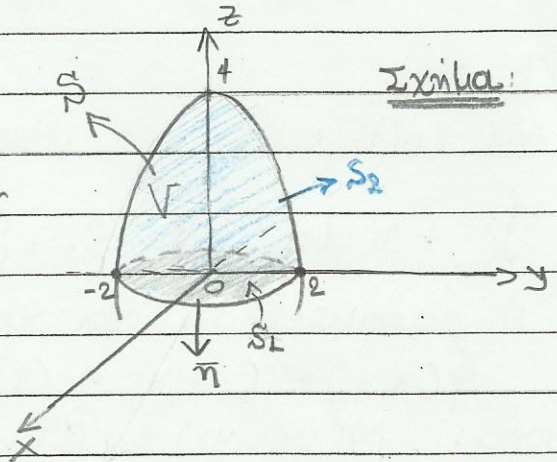 z
4
Σχήμα:
S
V
S₂
-2
0
2
y
S₁
n̄
x